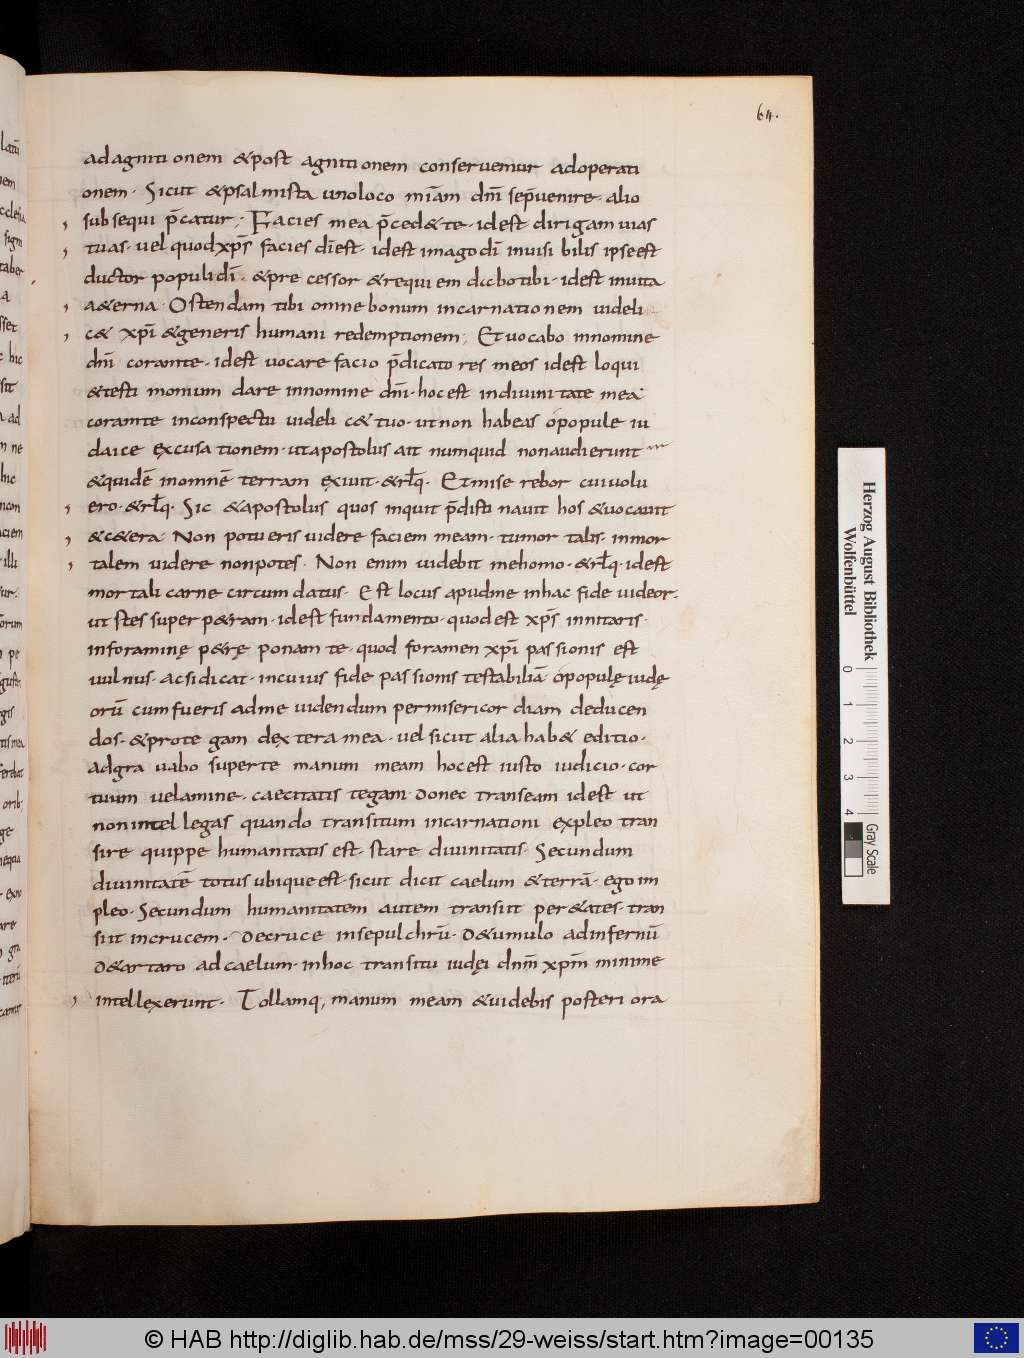 64.
adagniti onem &post agniti onem conseruemur adoperati
onem· Sicut &psalmista unoloco miām dm̄ sep̄uenire· alio
subsequi p̄catur; Facies mea p̄ced& te· idest dirigam uias
tuas· uel quodxp̄s facies dīest· idest imagodī inuisi bilis ipseest
ductor populidī· &pre cessor &requi em dabotibi· idest inuita
a&erna· Ostendam tibi omne bonum incarnatio nem uideli
c& xpī &generis humani redemptionem; Et uocabo innomine
dnī corante· idest uocare facio p̄dicato res meos idest loqui
&testi monium dare innomine dnī· hocest indiuini tate mea
corante inconspectu uideli c& tuo· ut non habeas ópopule iu
daice excusa tionem· utapostolus ait numquid nonaudierunt
&quidē inomnē terram exiuit· &rl̄q· Et mise rebor cuiuolu
ero· &rl̄q· Sic &apostolus quos inquit p̄disti nauit hos &uocauit
&c&era· Non potueris uidere faciem meam· tumor talis· inmor
talem uidere nonpotes· Non enim uidebit mehomo· &rl̄q· idest
mortali carne circum datus· Est locus apudme inhac fide uideor·
ut stes super p&ram· idest fundamento· quodest xp̄s innitaris·
inforaminę p&rę ponam te· quod foramen xpī passionis est
uulnus· acsidicat· incuius fide passionis testabiliā ópopulę iudę
orū cumfueris adme uidendum permisericor diam deducen
dos· &prote gam dextera mea· uel sicut alia hab& editio·
adgra uabo superte manum meam hocest iusto iudicio· cor
tuum uelamine· caecitatis tegam· Donec transeam idest ut
nonintel legas quando transitum incarnationi expleo tran
sire quippe humanitatis est· stare diuinitatis· Secundum
diuinitatē totus ubique est· sicut dicit caelum &terrā· ego im
pleo· Secundum humanitatem autem transiit per &ates· tran
siit incrucem· Decruce insepulchrū· D&umulo adinfernū
D&artaro adcaelum· inhoc transitu iudęi dnm̄ xpm̄ minime
intellexerunt· Tollamq; manum meam &uidebis posteri ora
Herzog August Bibliothek
Wolfenbüttel
0 1 2 3 4
Gray Scale
© HAB http://diglib.hab.de/mss/29-weiss/start.htm?image=00135